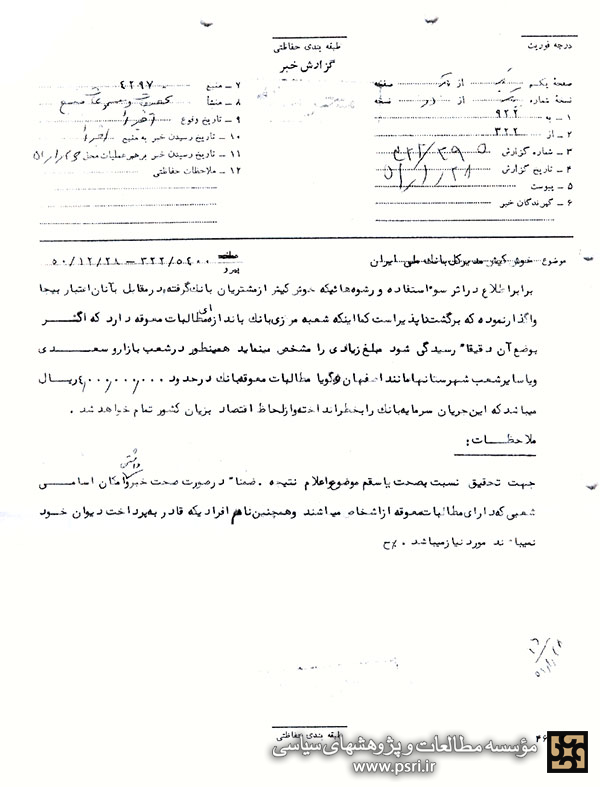 درجه فوریت
طبقه بندی حفاظتی
گزارش خبر
صفحهٔ یکم از صفحه
نسخهٔ شماره از نسخه
۱ ـ به ۹۲۲
۲ ـ از ۳۲۲
۳ ـ شماره گزارش
۴ ـ تاریخ گزارش ۵۱/۱/۲۸
۵ ـ پیوست
۶ ـ گیرندگان خبر
۷ ـ منبع ۴۲۹۷
۸ ـ منشأ منبع
۹ ـ تاریخ وقوع اخیرا
۱۰ ـ تاریخ رسیدن خبر به منبع اخیرا
۱۱ ـ تاریخ رسیدن خبر برهبر عملیات محل
۱۲ ـ ملاحظات حفاظتی
موضوع خوش کیش مدیرکل بانک ملی ایران
پیرو ۳۲۲/۵۴۰۰ ـ ۵۰/۱۲/۲۸
برابر اطلاع در اثر سوء استفاده و رشوه هائیکه خوش کیش از مشتریان بانک گرفته، در مقابل بآنان اعتبار بیجا
واگذار نموده که برگشت ناپذیر است کما اینکه شعبه مرکزی بانک باندازه ای مطالبات معوقه دارد که اگر
بوضع آن دقیقا" رسیدگی شود مبلغ زیادی را مشخص مینماید همینطور در شعب بازار و سعدی
و یا سایر شعب شهرستانها مانند اصفهان و گویا مطالبات معوقه بانک در حدود ۴٫۰۰۰٫۰۰۰٫۰۰۰ ریال
میباشد که این جریان سرمایه بانک را بخطر انداخته و از لحاظ اقتصاد بزیان کشور تمام خواهد شد .
ملاحظات :
جهت تحقیق نسبت بصحت یا سقم موضوع و اعلام نتیجه . ضمنا" در صورت صحت خبر و امکان داشتن اسامی
شعبی که دارای مطالبات معوقه از اشخاص میباشند و همچنین نام افرادیکه قادر به پرداخت دیون خود
نمیباشند مورد نیاز میباشد . ح
طبقه بندی حفاظتی
۴۶
مؤسسه مطالعات و پژوهشهای سیاسی
www.psri.ir